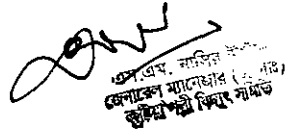 এস.এম. নাসির
জেনারেল ম্যানেজার
কুষ্টিয়া পল্লী বিদ্যুৎ সমিতি